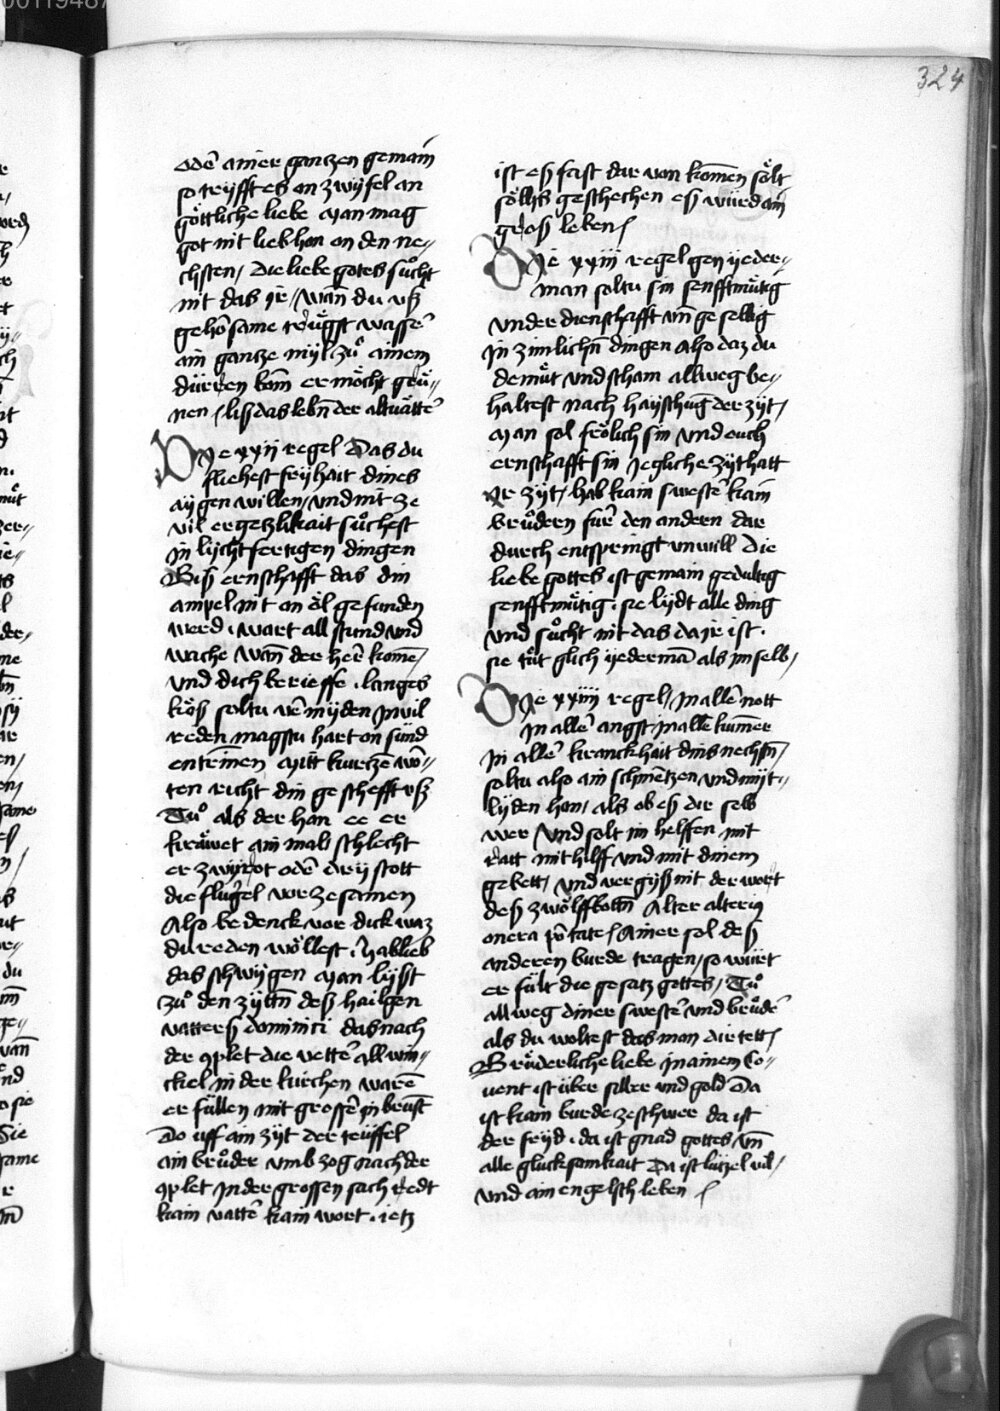 324
odē ainer gantzen gemain
so trifft es on zwyfel an
göttliche liebe Man mag
got nit lieb hon on den ne⸗
chsten / die liebe gotes sůcht
nit das ir / wān du vß
gehorsame trügst wasser
ain gantze myl zů ainem
dürren bom er möcht grü⸗
nen / liß das lebn̄ der altuättē
Die xxij regel Das du
fliehest fryhait dines
aygen willen / vnd nit ze
vil ergetzlikait sůchest
in lychtfertigen dingen
Biß ernschafft das din
ampel nit on öl gefunden
werd . wart all stund vnd
wache wān der her kome /
vnd dich berieffe . langes
köß soltu vermyden In vil
reden magstu hart on sünd
entrinen Mitt kurtze wo⸗
ten richt din geschefft vß
Tů als der han ee er
kräwet ain mals schlecht
er zwyrot odē dry stott
die flügel vor zesamen
Also bedenck vor dick waz
du reden wöllest . hab lieb
das schwygen Man lyßt
zů den zyttn̄ deß hailgen
vatters dominici das nach
der 9plet die vettē all win⸗
ckel in der kirchen warē
erfüllen mit grossē inbrust
Do uff ain zyt der teüffel
ain brůder vmb zog nach der
9plet In der grossen sach redt
kain vattē kain wort . ietz
ist eß fast dar von komen sölt
söllis geschechen eß würd ain
groß leben /
Die xxiij regel gen yeder⸗
man soltu sin senfftmütig
vnder dienschafft vn̄ gesellig
In zimlichn̄ dingen Also daz du
demüt vnd scham allweg be⸗
haltest nach hayschug der zyt /
Man sol frölich sin vnd ouch
ernschafft sin Jegliche zyt hatt
Ir zyt / hab kain swestē kain
brůdern für den andern dar
durch entspringt vnwill Die
liebe gottes ist gemain gedultig
senfftmütig . sie lydt alle ding
vnd sůcht nit das da ir ist .
sie tůt glich yedermā als ir selb /
Die xxiiij regel / In allē nott
In allē angst in allē kumer
In allē kranckhait dins nechstn̄ /
soltu also ain schmertzen vnd mit⸗
lyden hon / als ob eß dir selb
wer Vnd solt im helffen mit
ratt mit hilff vnd mit dinem
gebett / vnd vergyß nit der wort
deß zwölffbottn̄ Alter alteriꝰ
onera portate / Ainer sol deß
anderen burde tragen / so würt
er fült die gesatz gottes / Tů
allweg diner swestē vnd brůdē
als du woltest das man dir tett /
Brüderliche liebe In ainem Co⸗
uent ist über silber vnd gold Da
ist kain burde ze schwer da ist
der fryd . da ist gnad gottes / vn̄
alle glucksamkait Da ist lützel vil /
vnd ain engelsch leben /